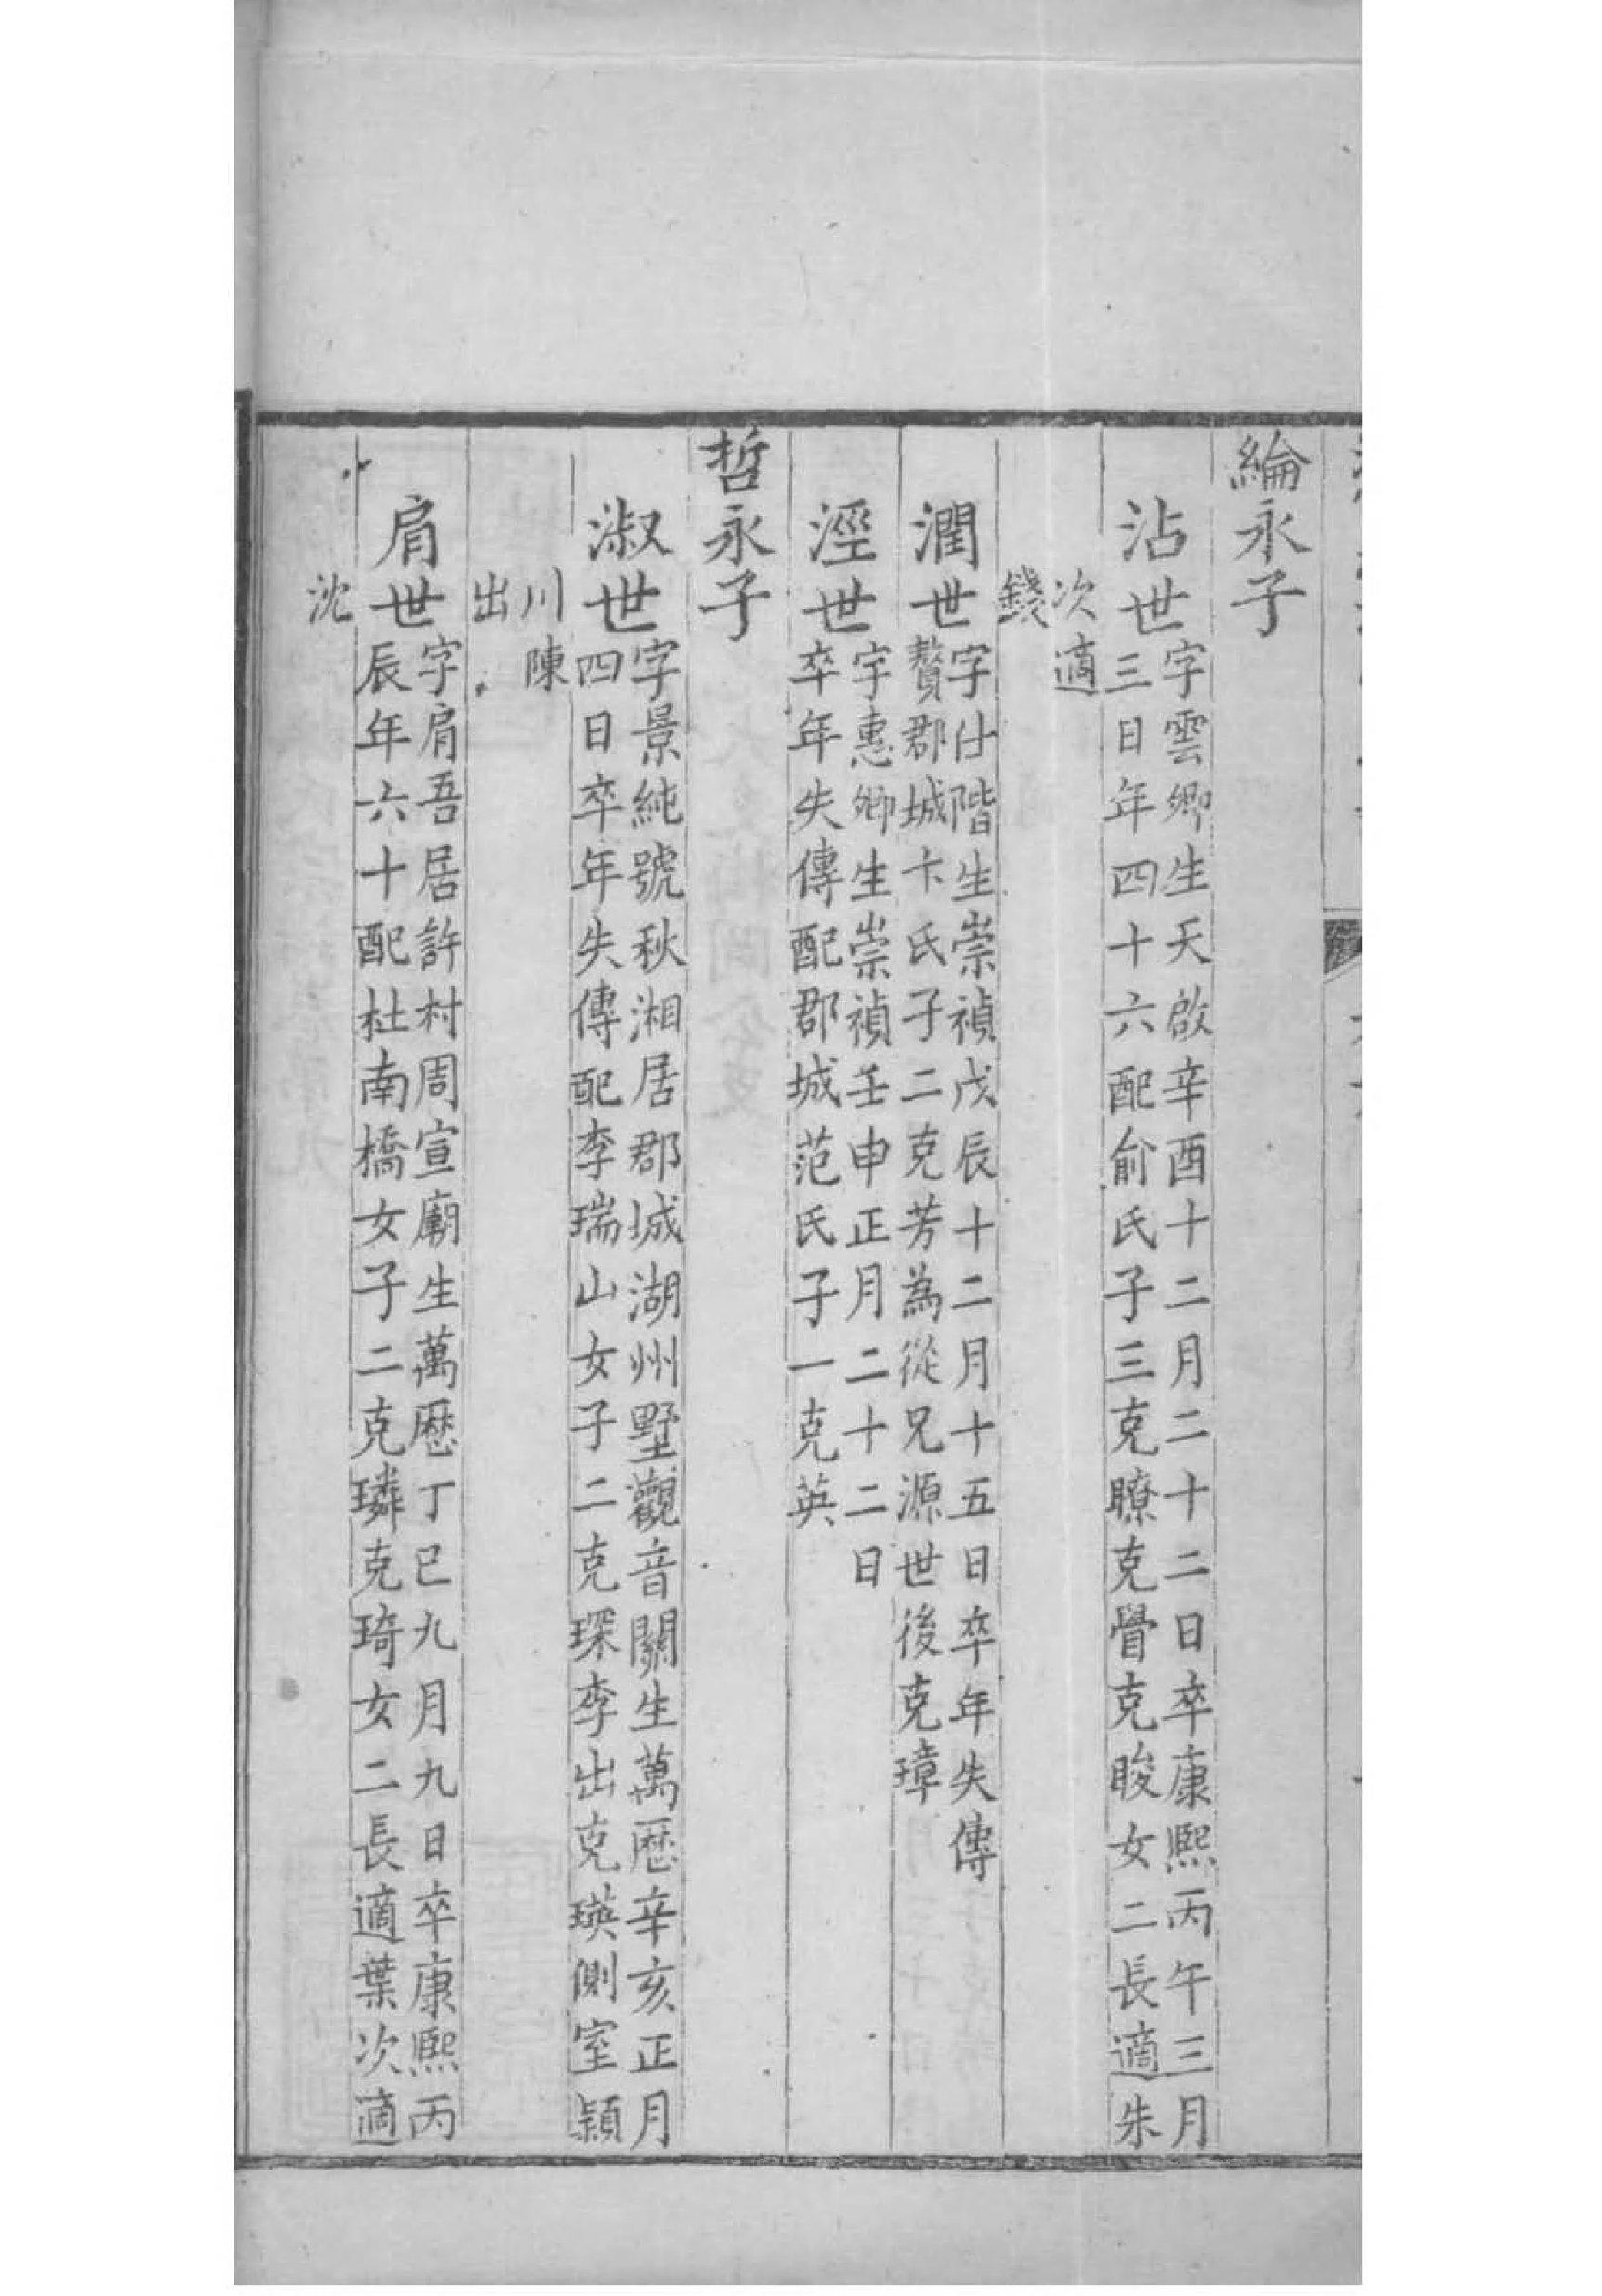 綸永子
沾世
字雲卿生天啟辛酉十二月二十二日卒康熙丙午三月
三日年四十六配俞氏子三克瞭克睂克睃女二長適朱
次適
錢
潤世
字仕階生崇禎戊辰十二月十五日卒年失傳
贅郡城卞氏子二克芳為從兄源世後克璋
涇世
字惠卿生崇禎壬申正月二十二日
卒年失傳配郡城范氏子一克英
哲永子
淑世
字景純號秋湘居郡城湖州墅觀音關生萬厯辛亥正月
四日卒年失傳配李瑞山女子二克琛李出克瑛側室潁
川陳
出
肩世
字肩吾居許村周宣廟生萬厯丁巳九月九日卒康熙丙
辰年六十配杜南橋女子二克璘克琦女二長適葉次適
沈